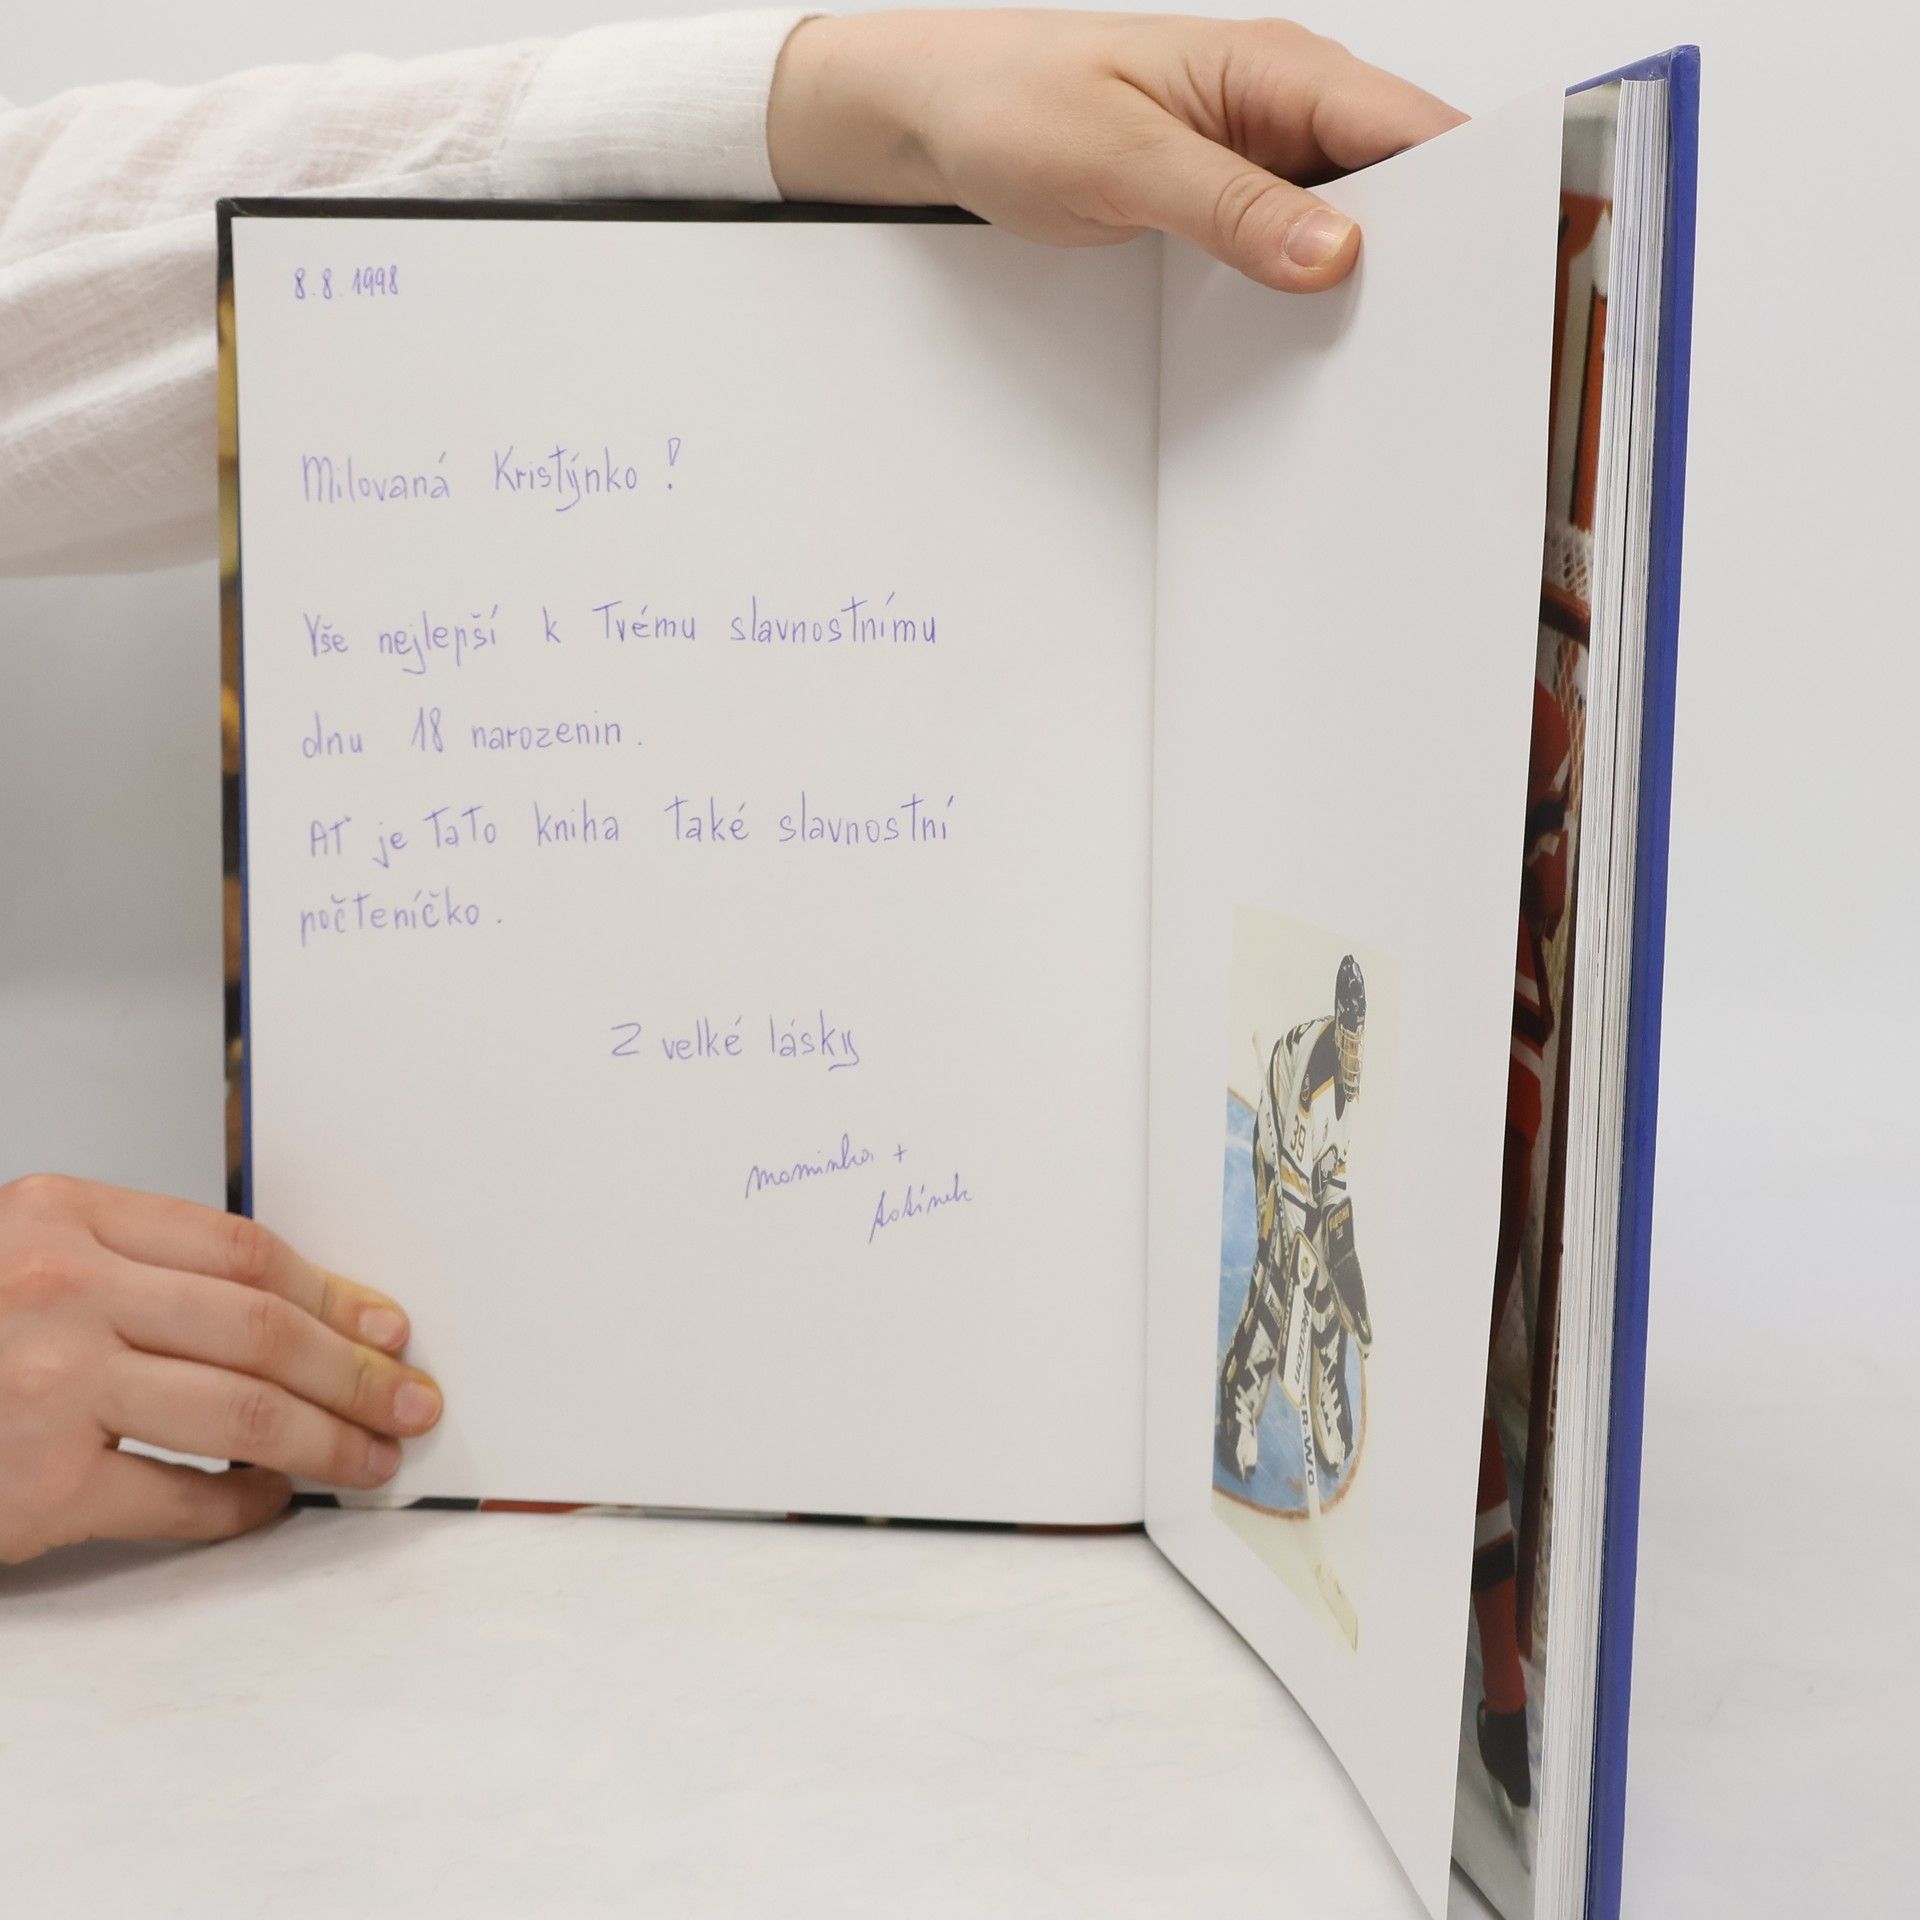 8.8.1998
Milovaná Kristýnko!
Vše nejlepší k Tvému slavnostnímu
dnu 18 narozenin.
Ať je tato kniha také slavnostní
počteníčko.
Z velké lásky
maminka +
tatínek
39
VAUGHN